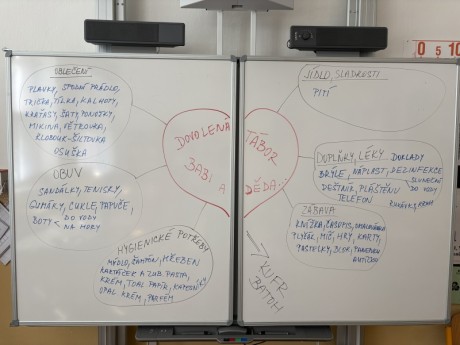 OBLEČENÍ
PLAVKY, SPODNÍ PRÁDLO,
TRIČKA, TÍLKA, KALHOTY,
KRAŤASY, ŠATY, PONOŽKY,
MIKINA, VĚTROVKA,
KLOBOUK-ŠILTOVKA
OSUŠKA
OBUV
SANDÁLKY, TENISKY,
GUMÁKY, CUKLE, PAPUČE,
BOTY DO VODY
NA HORY
HYGIENICKÉ POTŘEBY
MÝDLO, ŠAMPÓN, HŘEBEN
KARTÁČEK A ZUB. PASTA,
KRÉM, TOAL. PAPÍR, KAPESNÍKY
OPAL. KRÉM, PARFÉM
DOVOLENÁ
BABI A
TÁBOR
DĚDA...
JÍDLO, SLADKOSTI
PITÍ
DOPLŇKY, LÉKY DOKLADY
BRÝLE, NÁPLAST, DEZINFEKCE
SLUNEČNÍ
DO VODY
DEŠTNÍK, PLÁŠTĚNKU
TELEFON
ZÁBAVA
KNÍŽKA, ČASOPIS,
PLYŠÁK, MÍČ, HRY, KARTY
PASTELKY, BLOK,
AUTÍČKO
KUFR
BATOH
0 5 10